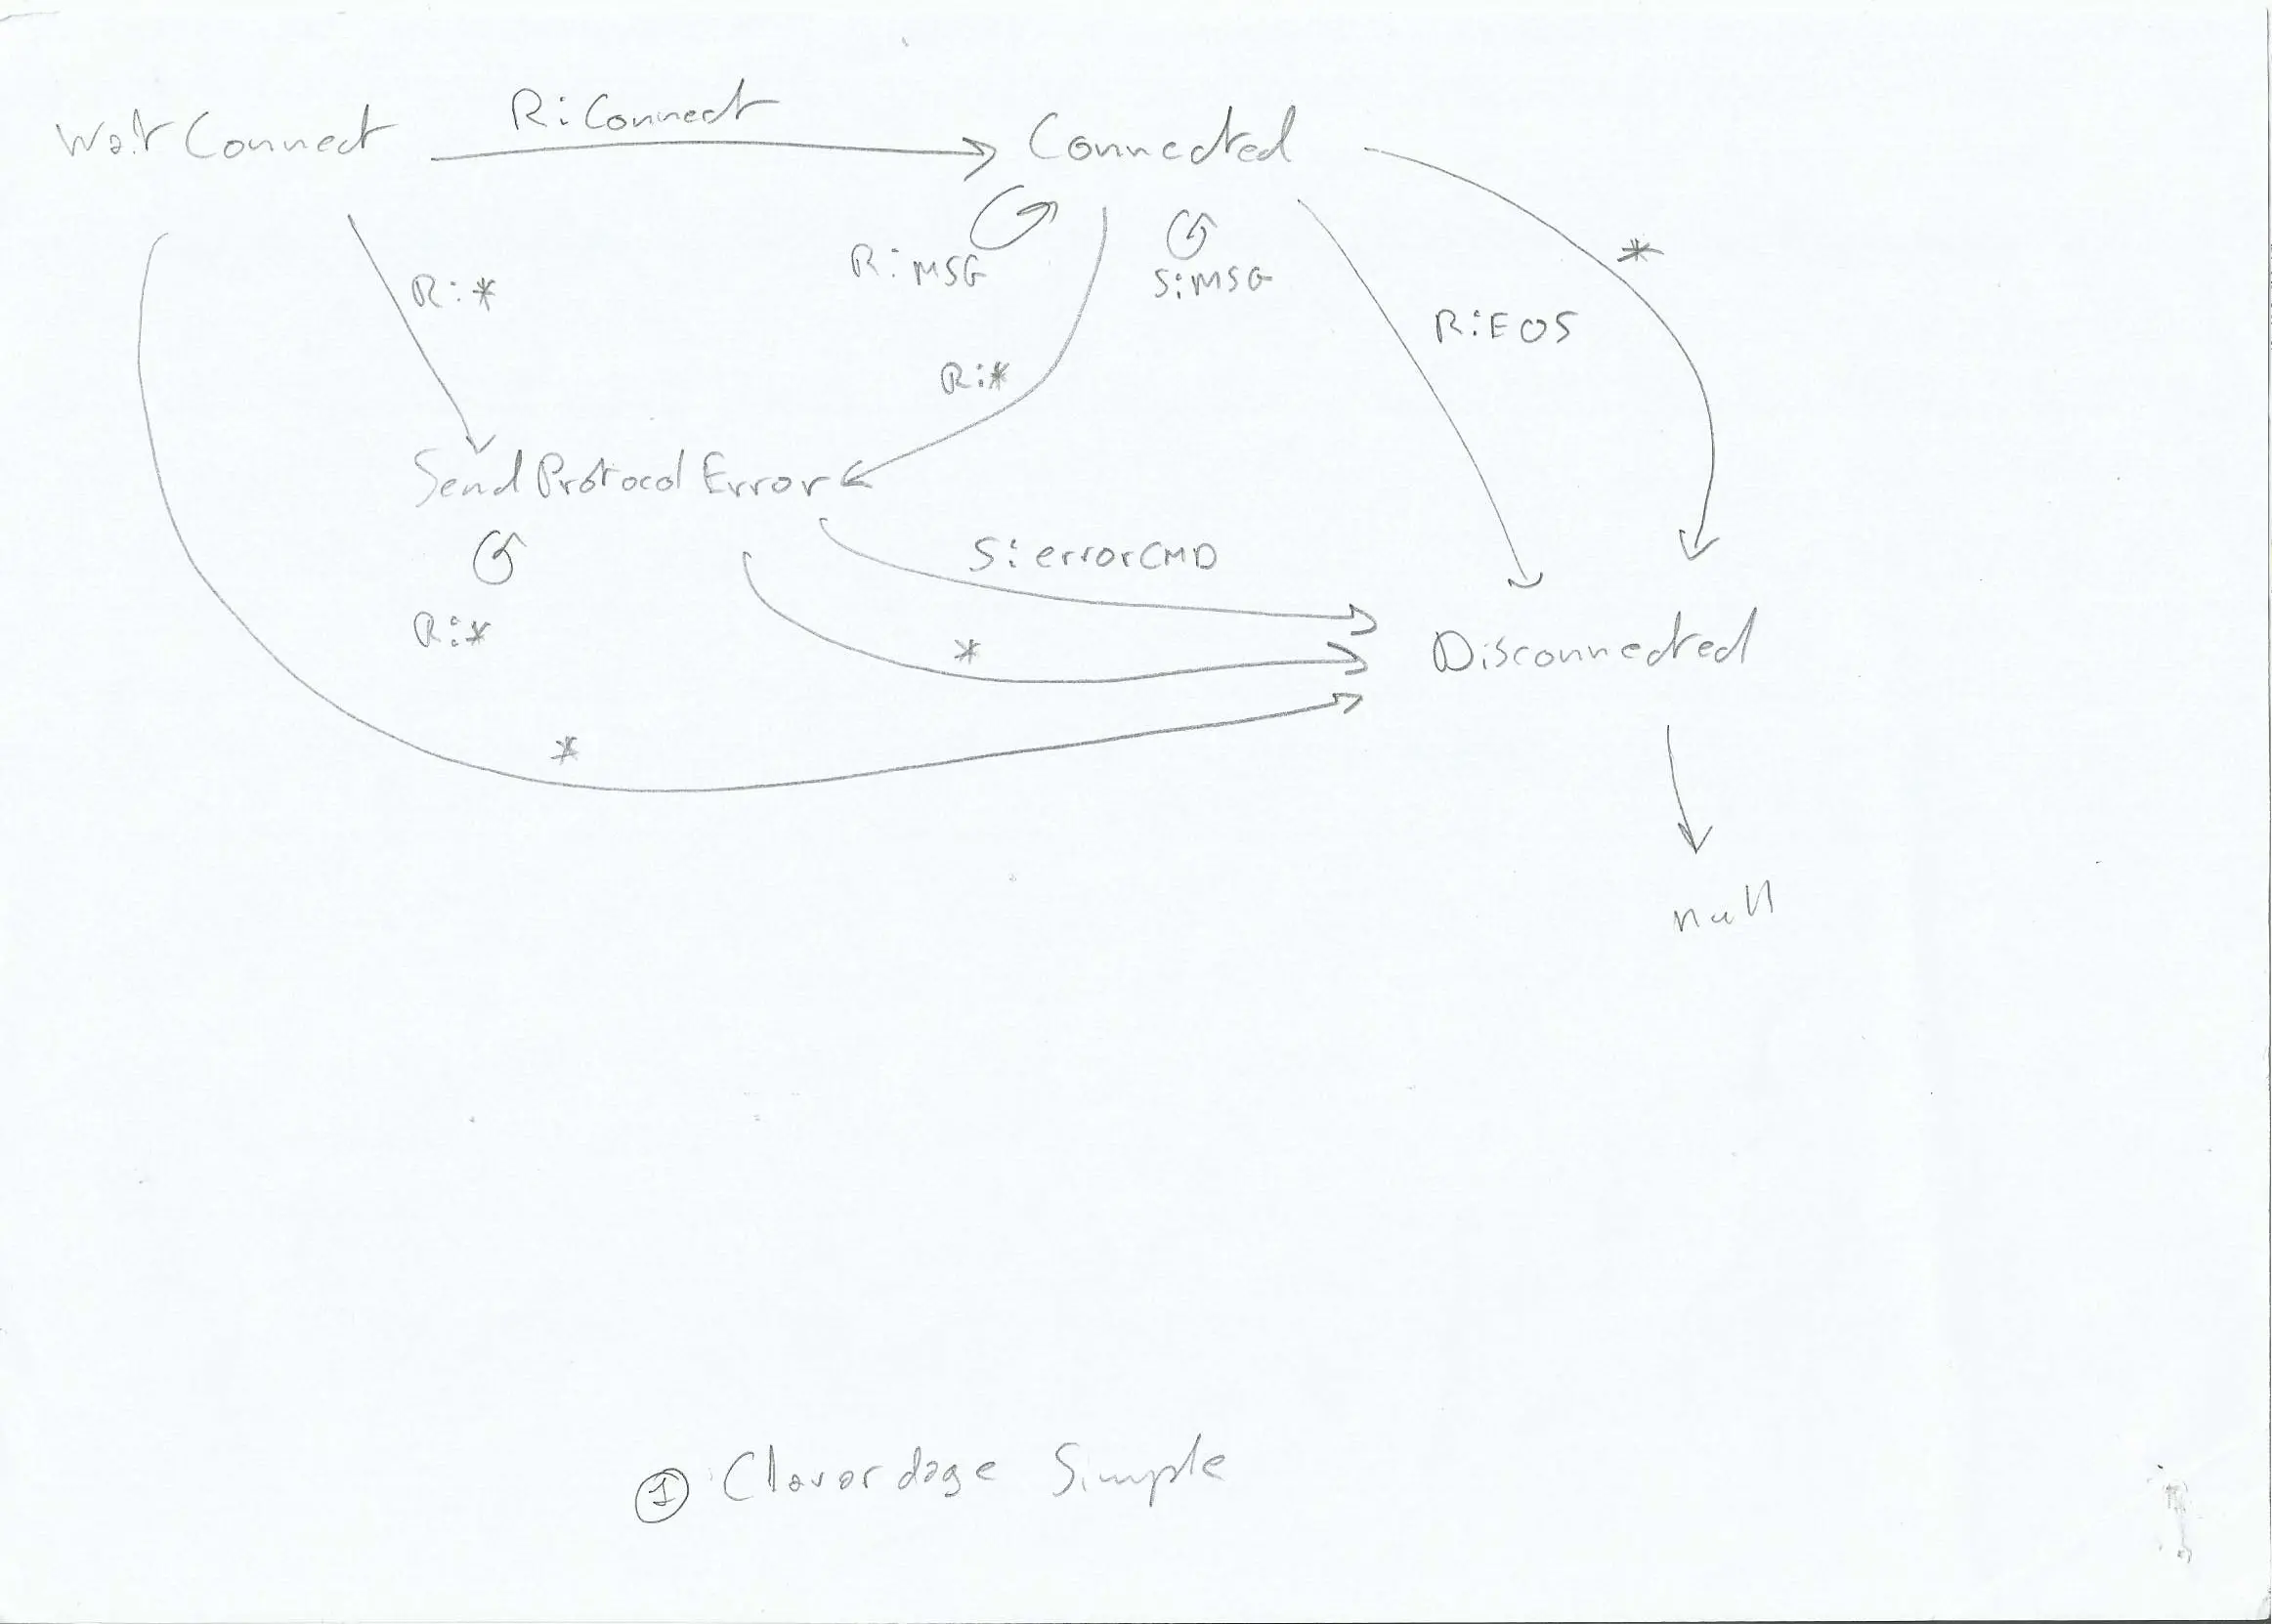 Wait Connect
R: Connect
Connected
R: *
R: MSG
S: MSG
*
R: EOS
R: *
Send Protocol Error
S: errorCMD
R: *
*
Disconnected
*
null
① Clavardage Simple